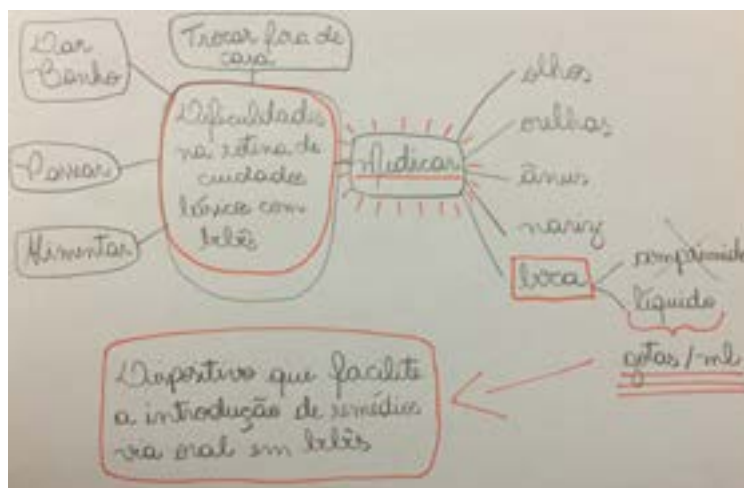 Dar
Banho
Trocar fora de
casa
Passear
Alimentar
Dificuldades
na rotina de
cuidados
básicos com
bebês
Medicar
olhos
orelhas
ânus
nariz
boca
comprimido
líquido
gotas/ml
Dispositivo que facilite
a introdução de remédios
via oral em bebês